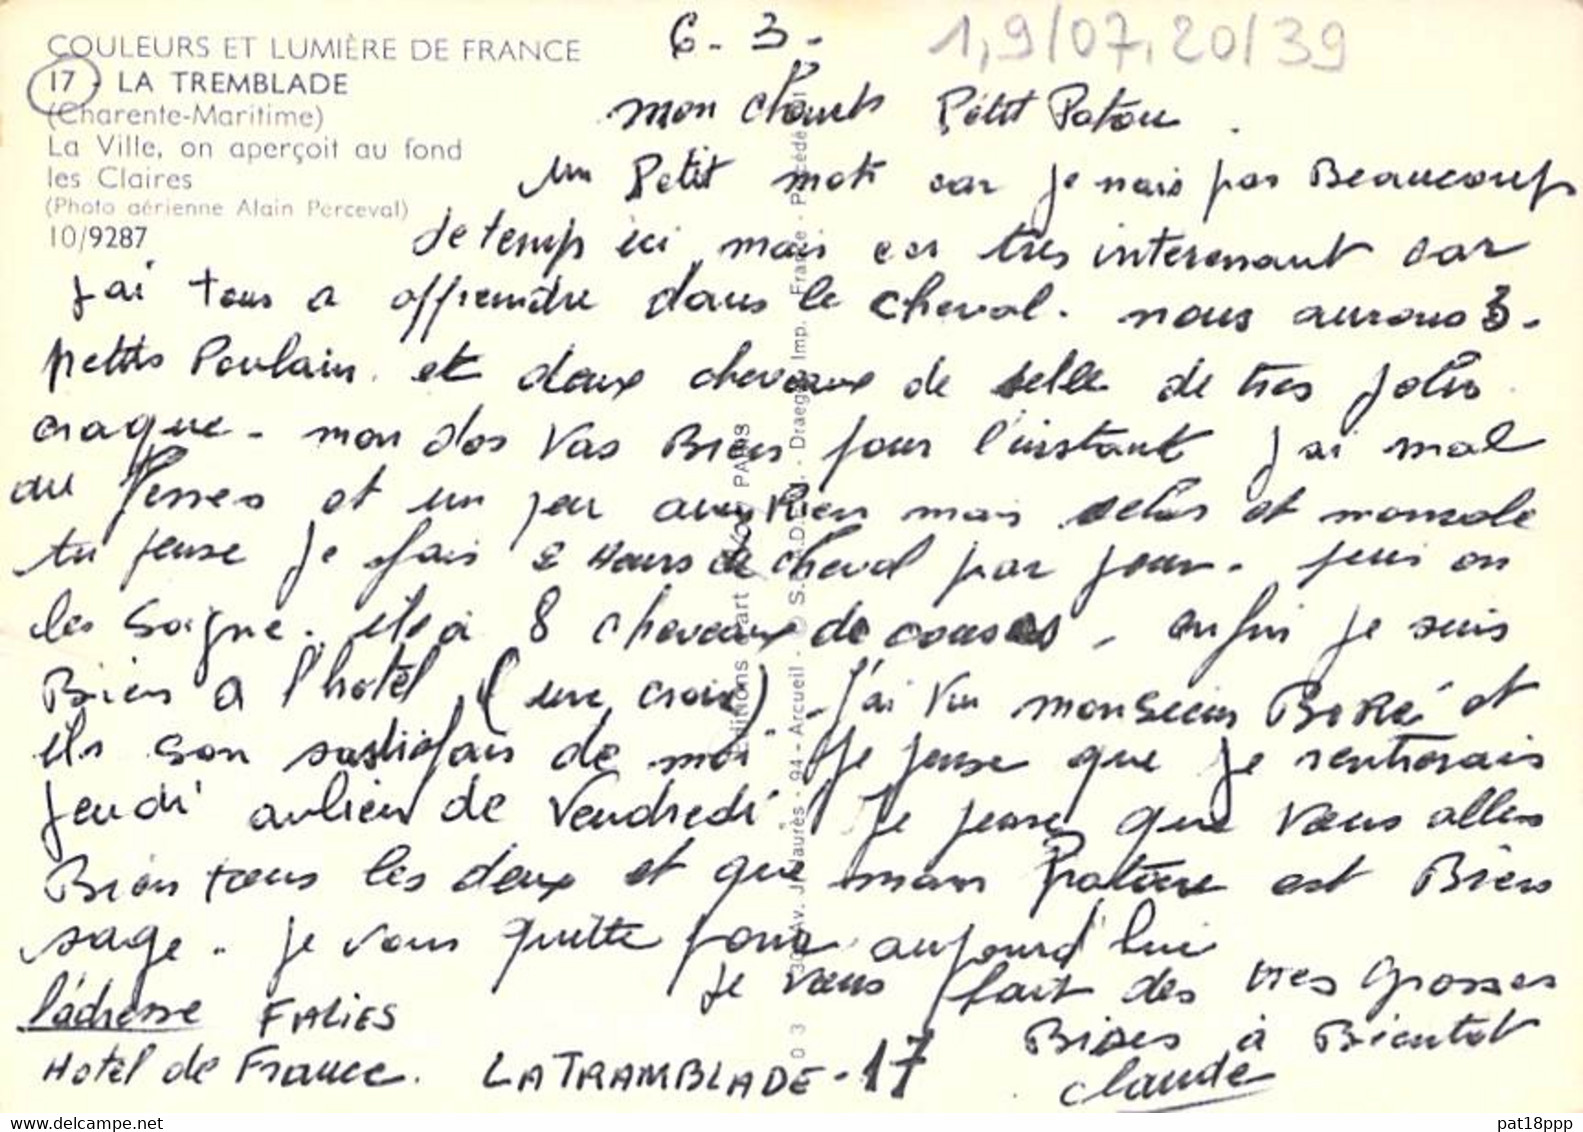 COULEURS ET LUMIÈRE DE FRANCE
17 - LA TREMBLADE
(Charente-Maritime)
La Ville, on aperçoit au fond
les Claires
(Photo aérienne Alain Perceval)
10/9287
6 - 3 -
1,9/07.20/39
mon Petit Patou
un Petit mot car je nais pas Beaucoup
de temp ici mais car tres interessant car
j'ai tous a apprendre dans le cheval. nous aurons 3.
petits Poulain et deux chevaux de selle de tres jolis
craque - mon dos Vas Bien pour l'instant j'ai mal
au Fesses et un peu mais et
tu pense je fais 2 Heurs de cheval par jour. puis on
les Soigne. ils a 8 chevaux de courses, enfin je suis
Bien a l'hotel, (une croix) j'ai Vu monsieur BORÉ et
ils son de moi je pense que je rentrerais
jeudi aulieu de Vendredi Je pense que Vous allez
Bien tous les deux et que mon Patou est Bien
sage. je vous quitte pour aujourd'hui
je vous fait des tres Grosses
Bises à Bientot
Claude
l'adresse FALIES
Hotel de France. LA TRAMBLADE - 17
Editions d'art PARIS
03 30, Av. J. Jaurès - 94 - Arcueil - © S.P.A.D.E.M. - Draeger Imp. France - Procédé
pat18ppp